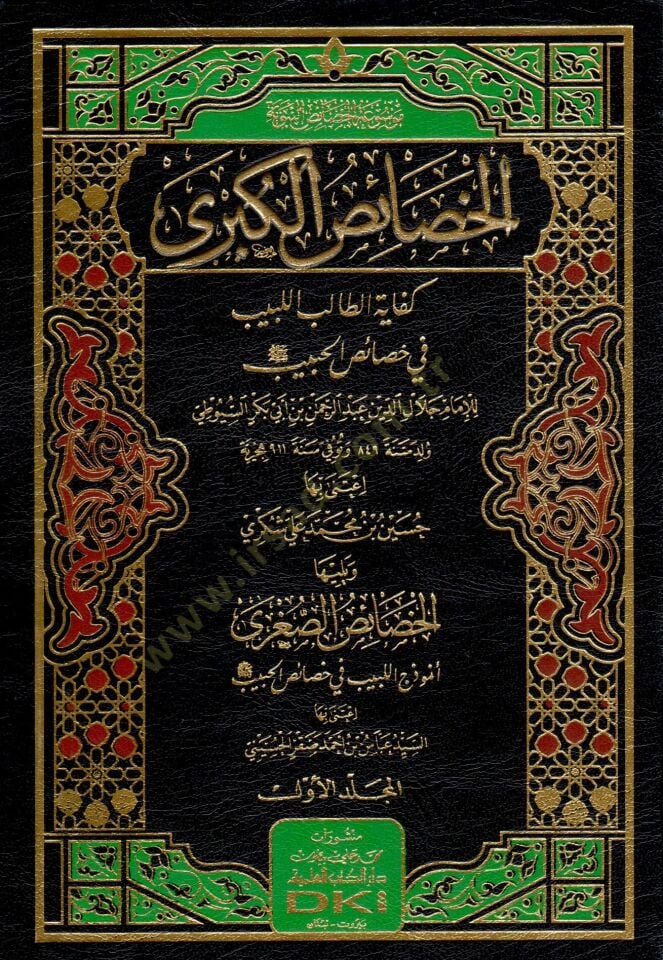 موسوعة الخصائص النبوية
الخصائص الكبرى
كفاية الطالب اللبيب
في خصائص الحبيب ﷺ
للإمام جلال الدين عبد الرحمن بن أبي بكر السيوطي
ولد سنة ٨٤٩ وتوفي سنة ٩١١ هجرية
اعتنى بها
حسين بن محمد علي شكري
ويليها
الخصائص الصغرى
أنموذج اللبيب في خصائص الحبيب ﷺ
اعتنى بها
السيد عباس بن أحمد صقر الحسيني
المجلد الأول
منشورات
محمد علي بيضون
دار الكتب العلمية
DKi
بيروت - لبنان